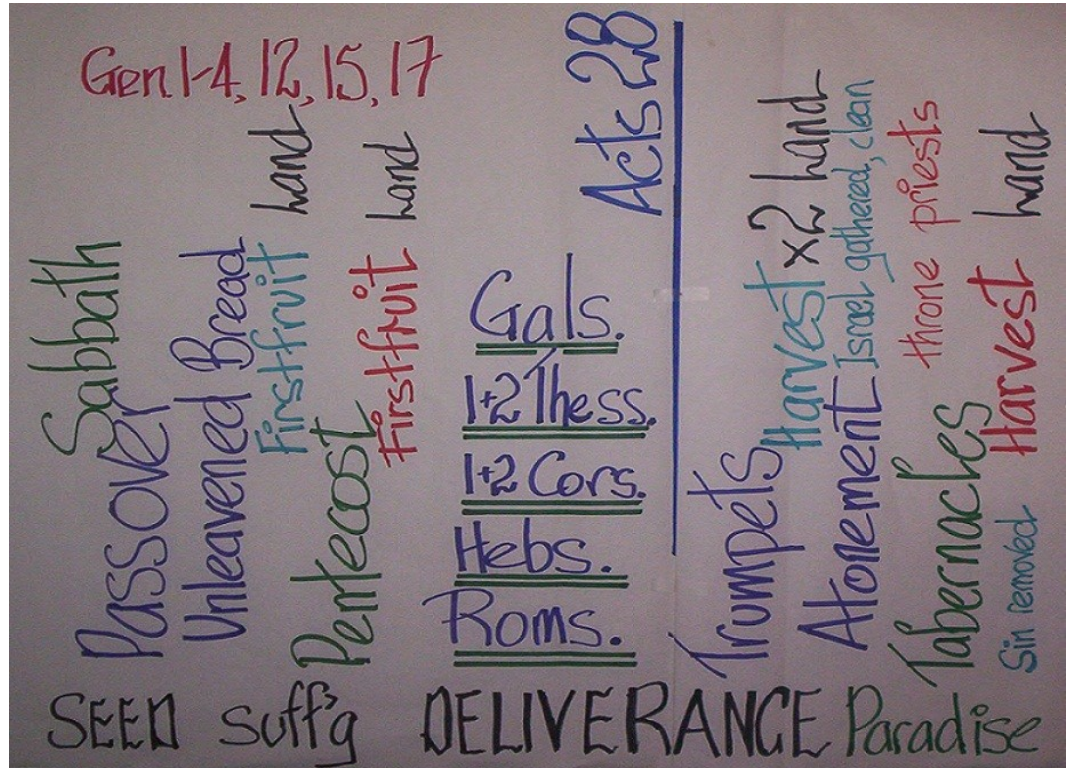 Gen 1-4, 12, 15, 17
Sabbath
Passover
Unleavened Bread
Firstfruit hand
Pentecost
Firstfruit hand
Gals.
1+2 Thess.
1+2 Cors.
Hebs.
Roms.
Acts 28
Trumpets
Harvest x2 hand
Atonement Israel gathered, clean
throne priests
Tabernacles
Harvest hand
Sin removed
SEED Suff'g DELIVERANCE Paradise